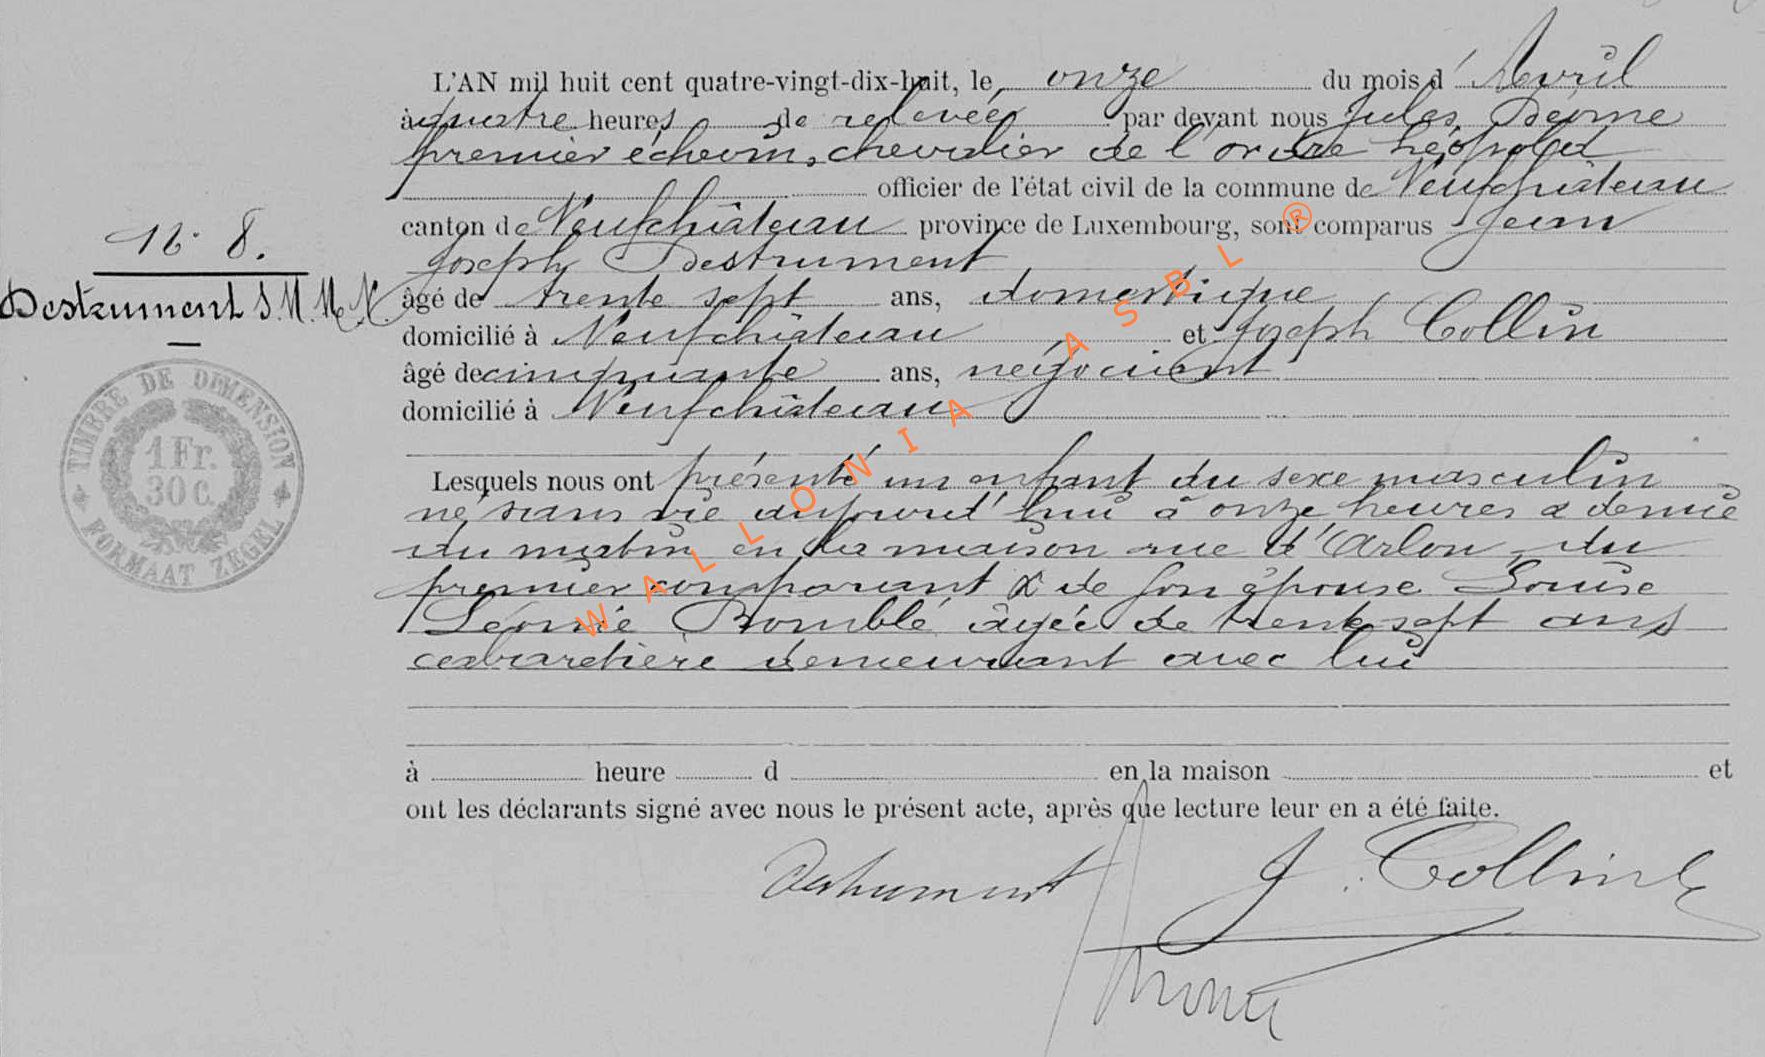 L'AN mil huit cent quatre-vingt-dix-huit, le onze du mois d'Avril
à quatre heures de relevée par devant nous Jules
premier échevin, chevalier de l'ordre Léopold
officier de l'état civil de la commune de Neufchâteau
canton de Neufchâteau province de Luxembourg, sont comparus Jean
Joseph Destrument
âgé de trente sept ans, domestique
domicilié à Neufchâteau et Joseph Collin
âgé de cinquante ans, négociant
domicilié à Neufchâteau
N° 8.
Destrument S. M. M. N.
TIMBRE DE DIMENSION
1 Fr.
30 C.
FORMAAT ZEGEL
Lesquels nous ont présenté un enfant du sexe masculin
né sans vie aujourd'hui à onze heures & demie
du matin en la maison rue d'Arlon, du
premier comparant & de son épouse Louise
Léonie Bomblé âgée de trente sept ans
cabaretière demeurant avec lui
à heure d en la maison et
ont les déclarants signé avec nous le présent acte, après que lecture leur en a été faite.
Destrument J. Collin
WALLONIA ASBL ®